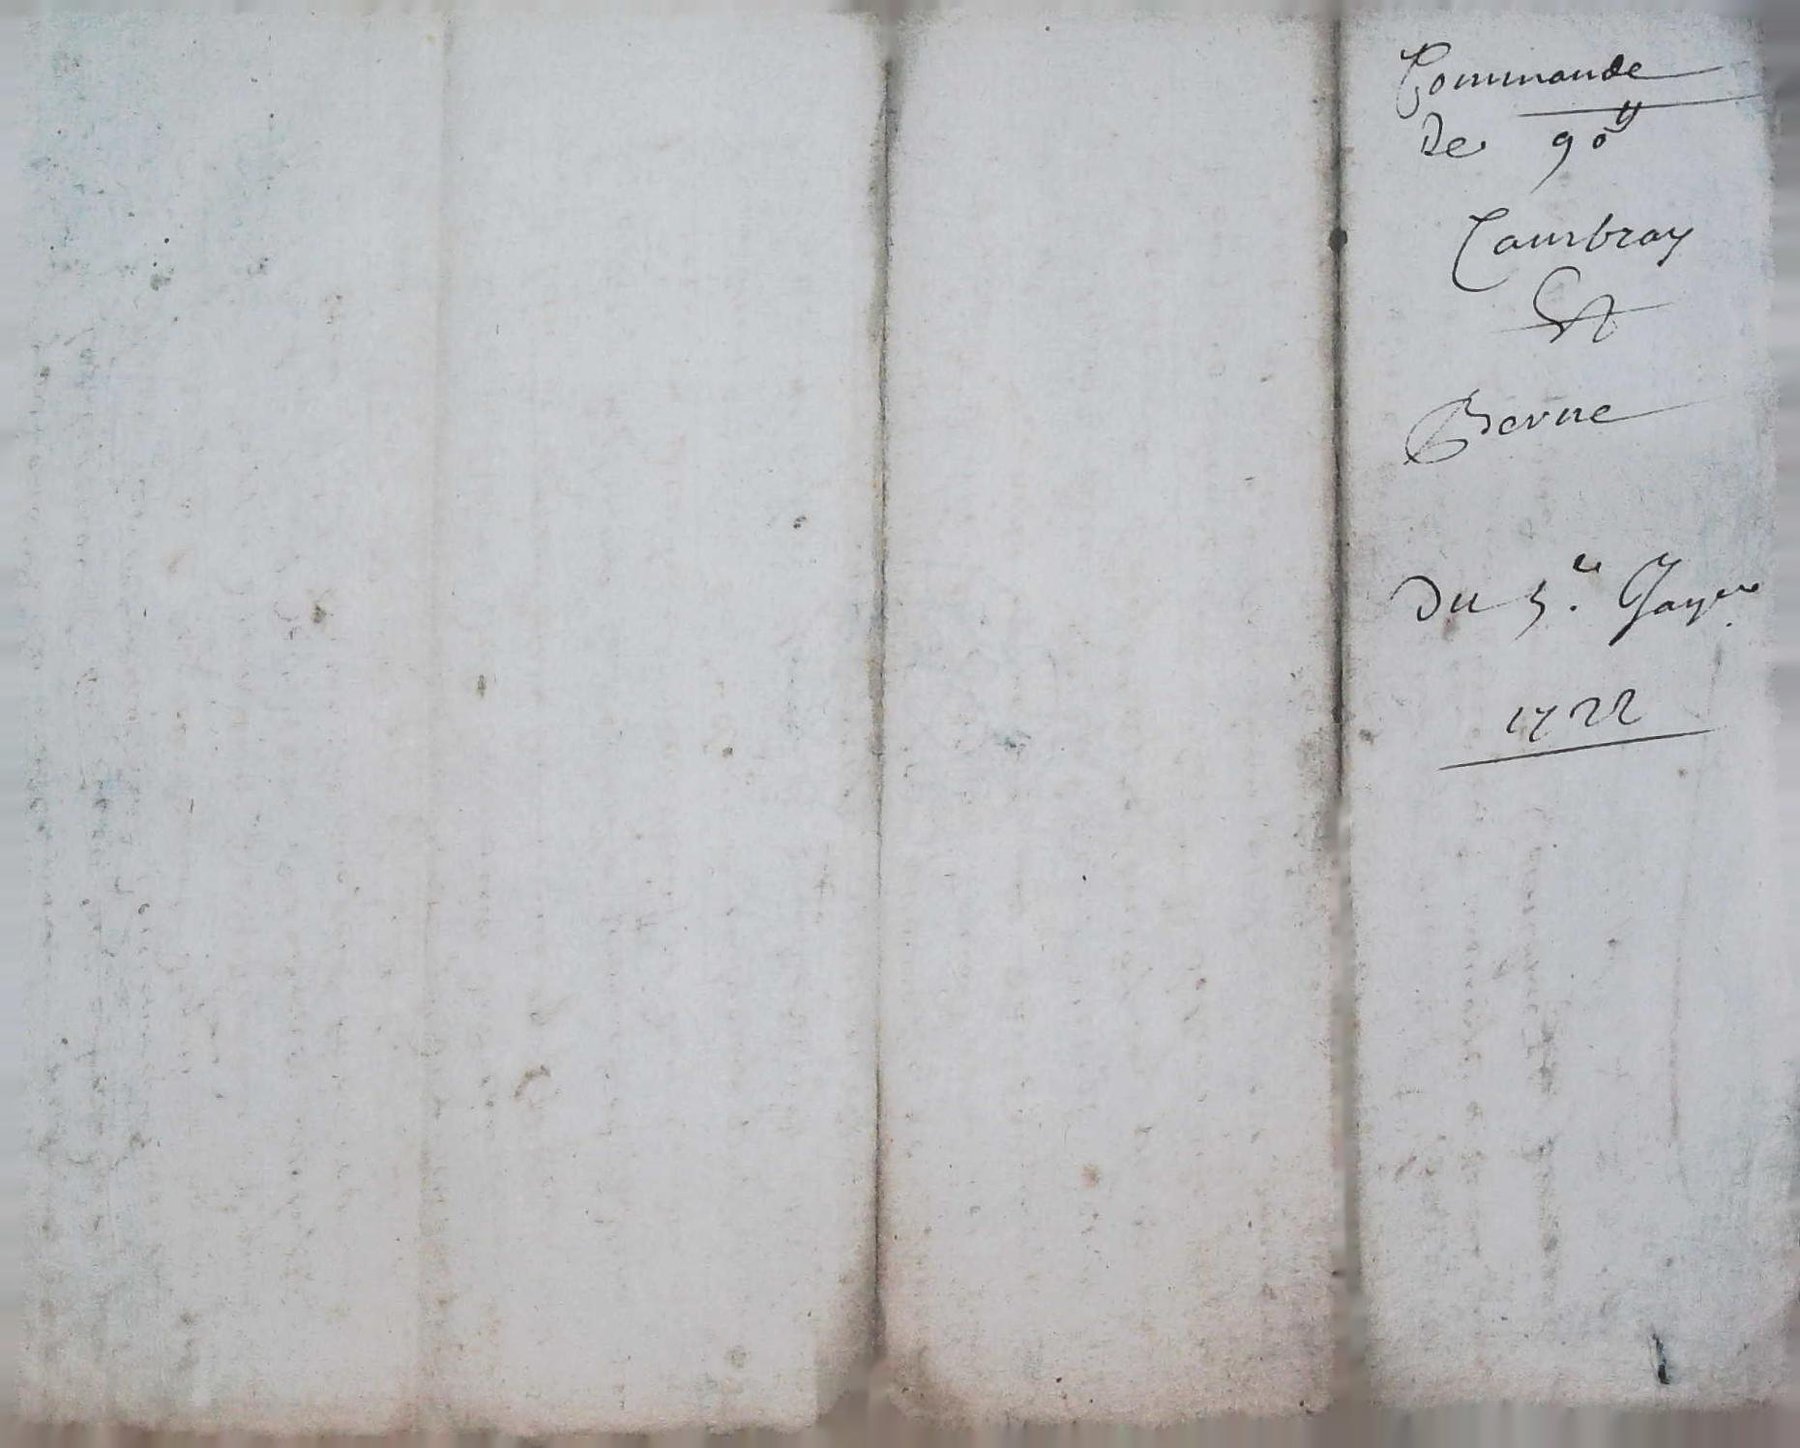 Commande
de 90 ₶
Cambray
Et
Berne
du 5.e Janv.
1722